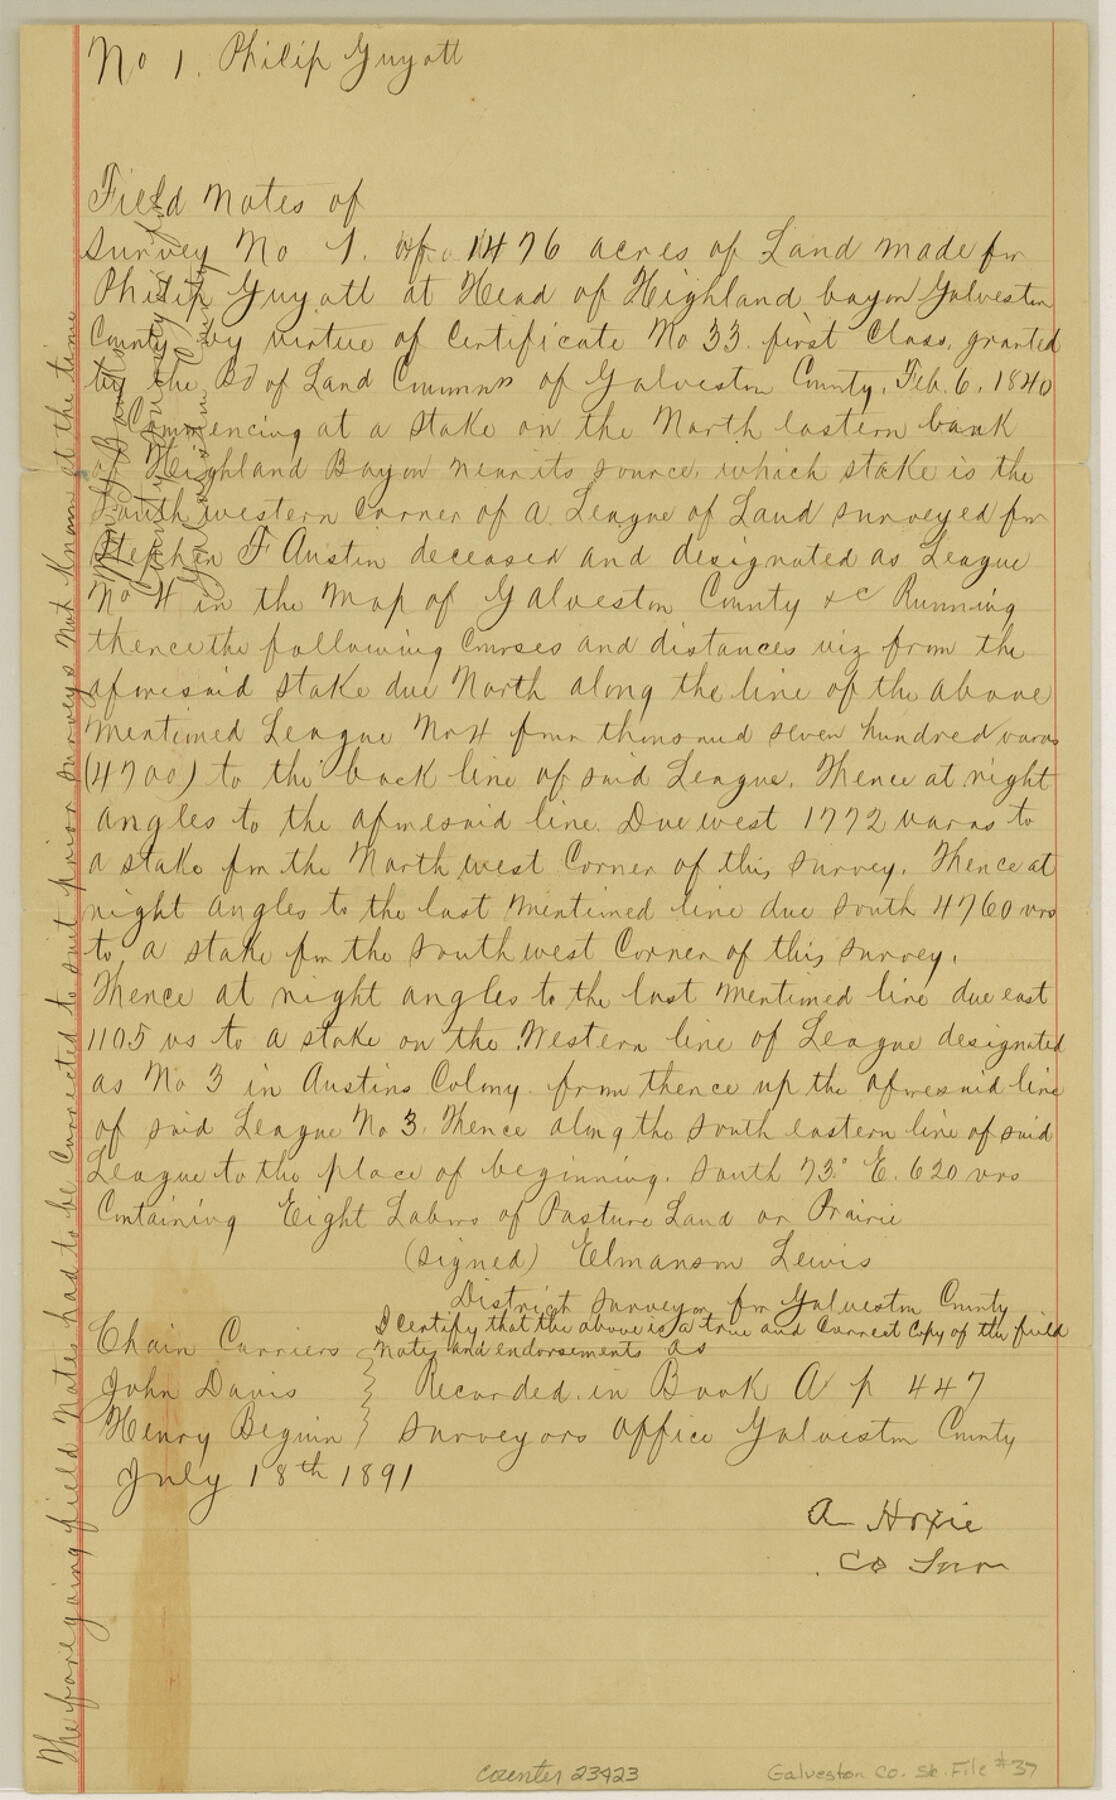 No 1. Philip Guyott
Field Notes of
survey No 1. of 1476 acres of Land made for
Philip Guyott at Head of Highland bayou Galveston
County, by virtue of Certificate No 33. first Class, granted
by the Bd of Land Commrs of Galveston County, Feb. 6. 1840
Commencing at a stake on the North Eastern bank
of Highland Bayou near its source, which stake is the
South western corner of a League of Land surveyed for
Stephen F Austin deceased and designated as League
No 4 in the map of Galveston County &c Running
thence the following Courses and distances viz from the
aforesaid stake due North along the line of the above
mentioned League No 4 four thousand seven hundred varas
(4700) to the back line of said League. Thence at right
angles to the aforesaid line. Due west 1772 varas to
a stake for the North west Corner of this survey. Thence at
right angles to the last mentioned line due south 4760 vrs
to a stake for the south west Corner of this survey.
Thence at right angles to the last mentioned line due east
1105 vs to a stake on the Western line of League designated
as No 3 in Austins Colony. from thence up the aforesaid line
of said League No 3. Thence along the south eastern line of said
League to the place of beginning. South 73° E. 620 vrs
Containing Eight Labors of Pasture Land or Prairie
(signed) Elmanson Lewis
District surveyor for Galveston County
I certify that the above is a true and Correct Copy of the field
Notes and endorsements as
Chain Carriers
John Davis } Recorded in Book A p 447
Henry Beguin } Surveyors office Galveston County
July 18th 1891
A Hoxie
Co Sur
The foregoing field Notes had to be Corrected to suit prior surveys not Known at the time
counter 23423
Galveston Co. Sk. File #37